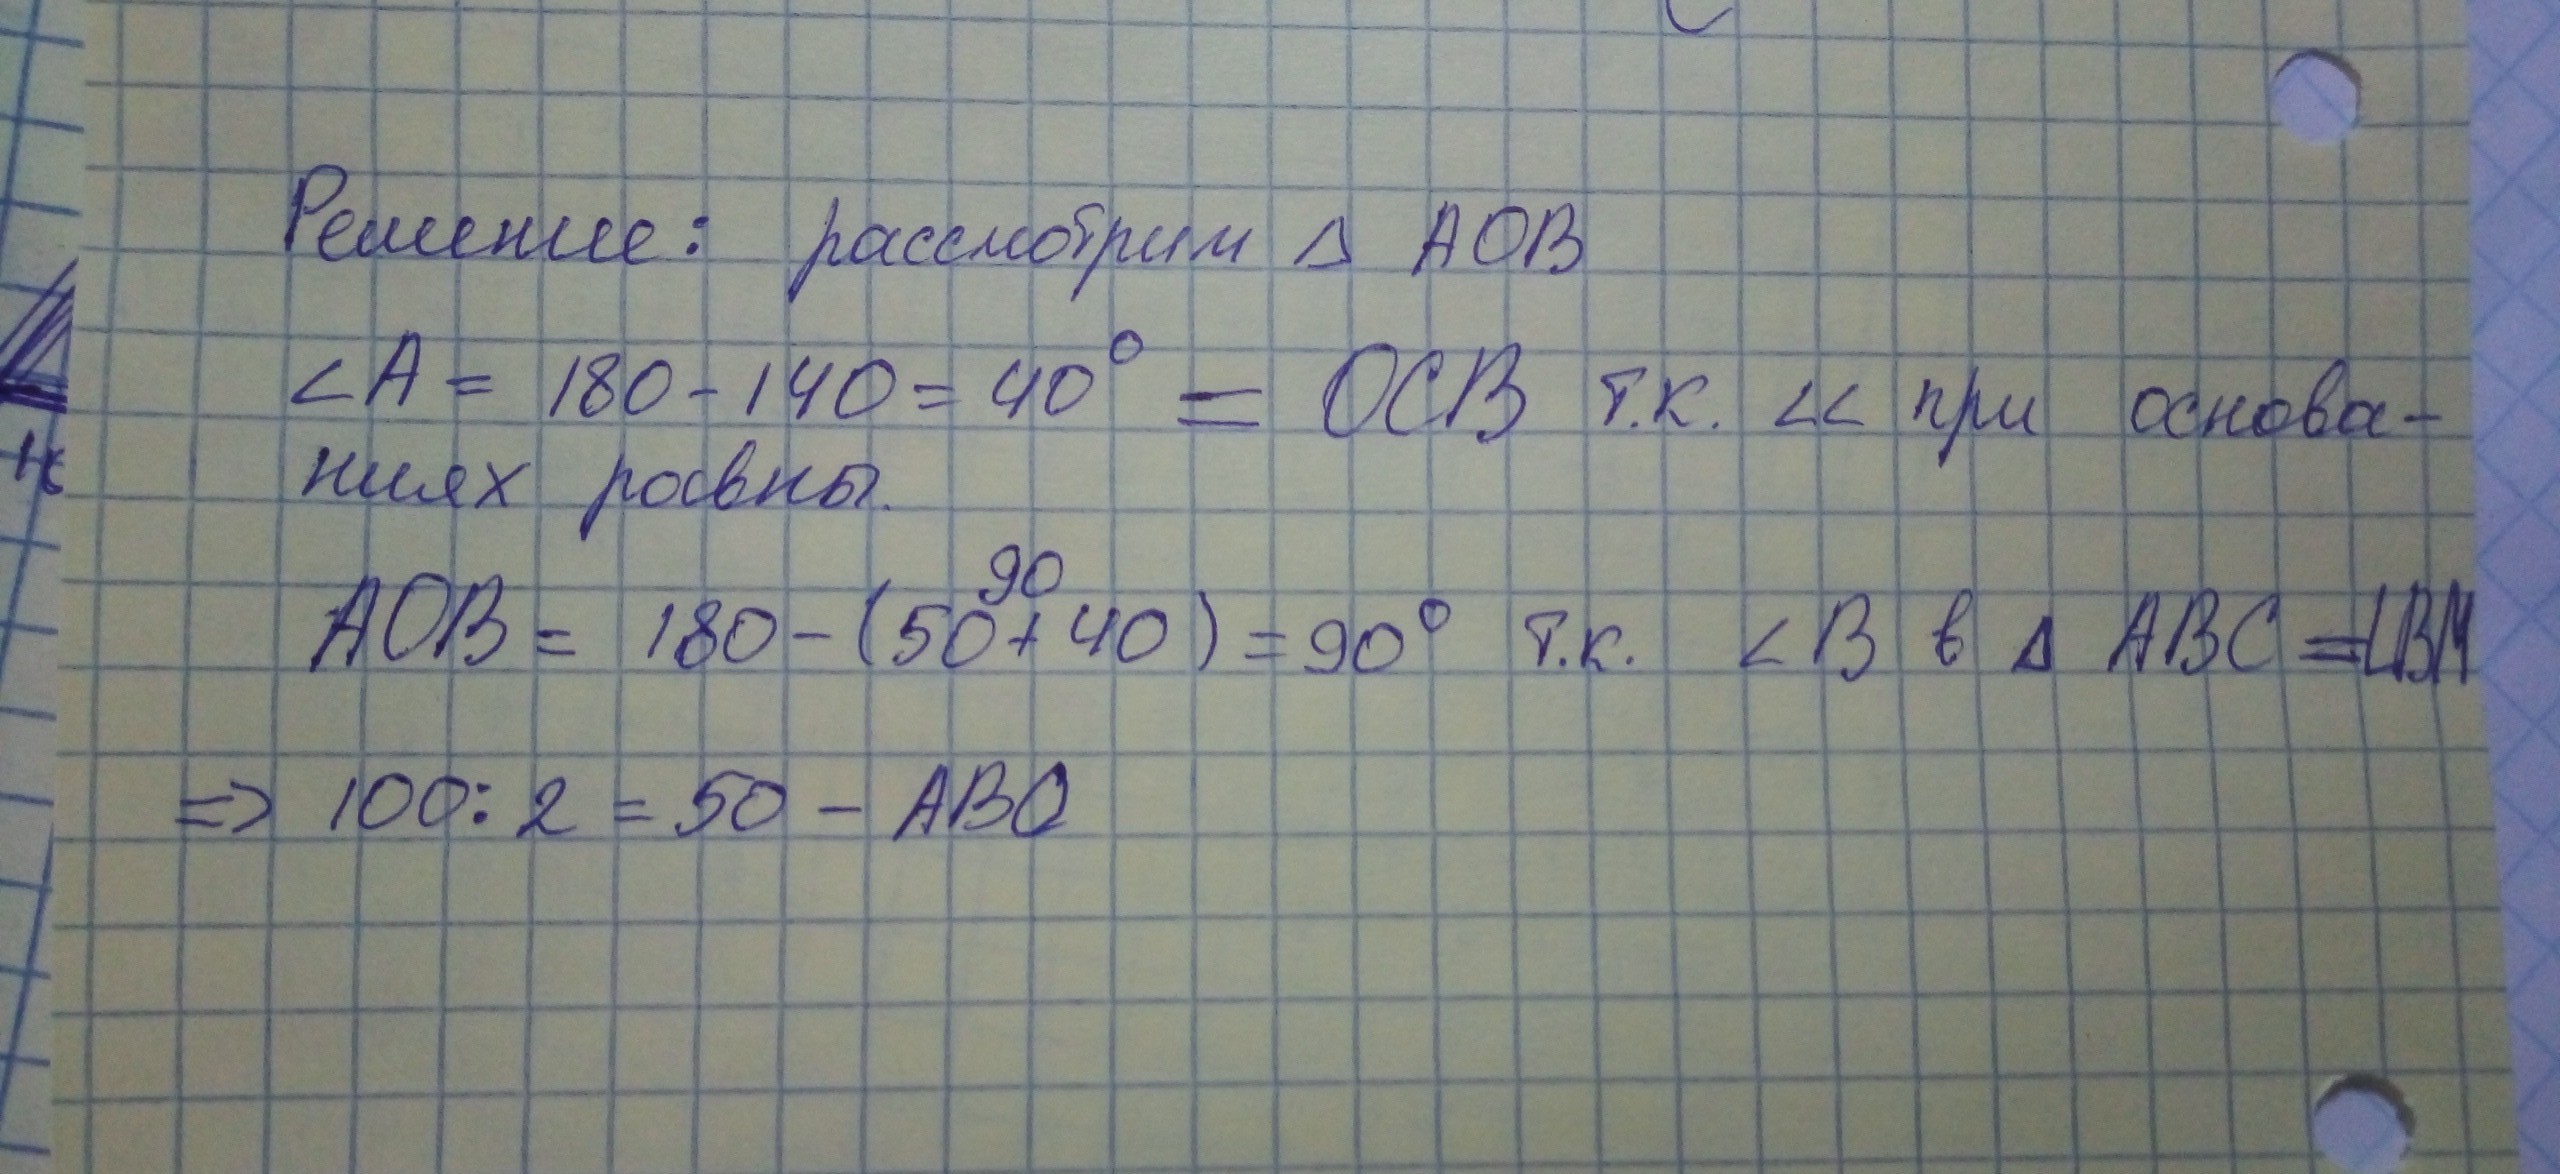 Решение: рассмотрим Δ AOB
∠A = 180 - 140 = 40° = OCB т.к. ∠∠ при основа-
ниях росвны.
90
AOB = 180 - (50 + 40) = 90° т.к. ∠B в Δ ABC = LBM
=> 100 : 2 = 50 - ABO